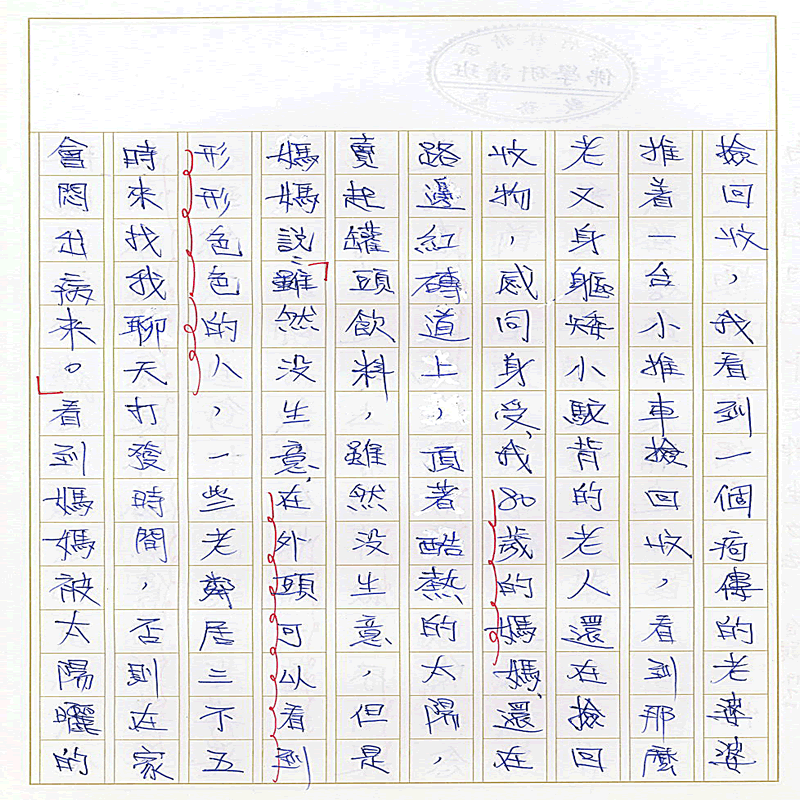 佛學研讀班
撿回收，我看到一個痀僂的老婆婆
推着一台小推車撿回收，看到那麼
老又身軀矮小駝背的老人還在撿回
收物，感同身受，我80歲的媽媽，還在
路邊紅磚道上，頂著酷熱的太陽，
賣起罐頭飲料，雖然沒生意，但是
媽媽說：「雖然沒生意，在外頭可以看到
形形色色的人，一些老鄰居三不五
時來找我聊天打發時間，否則在家
會悶出病來。」看到媽媽被太陽曬的